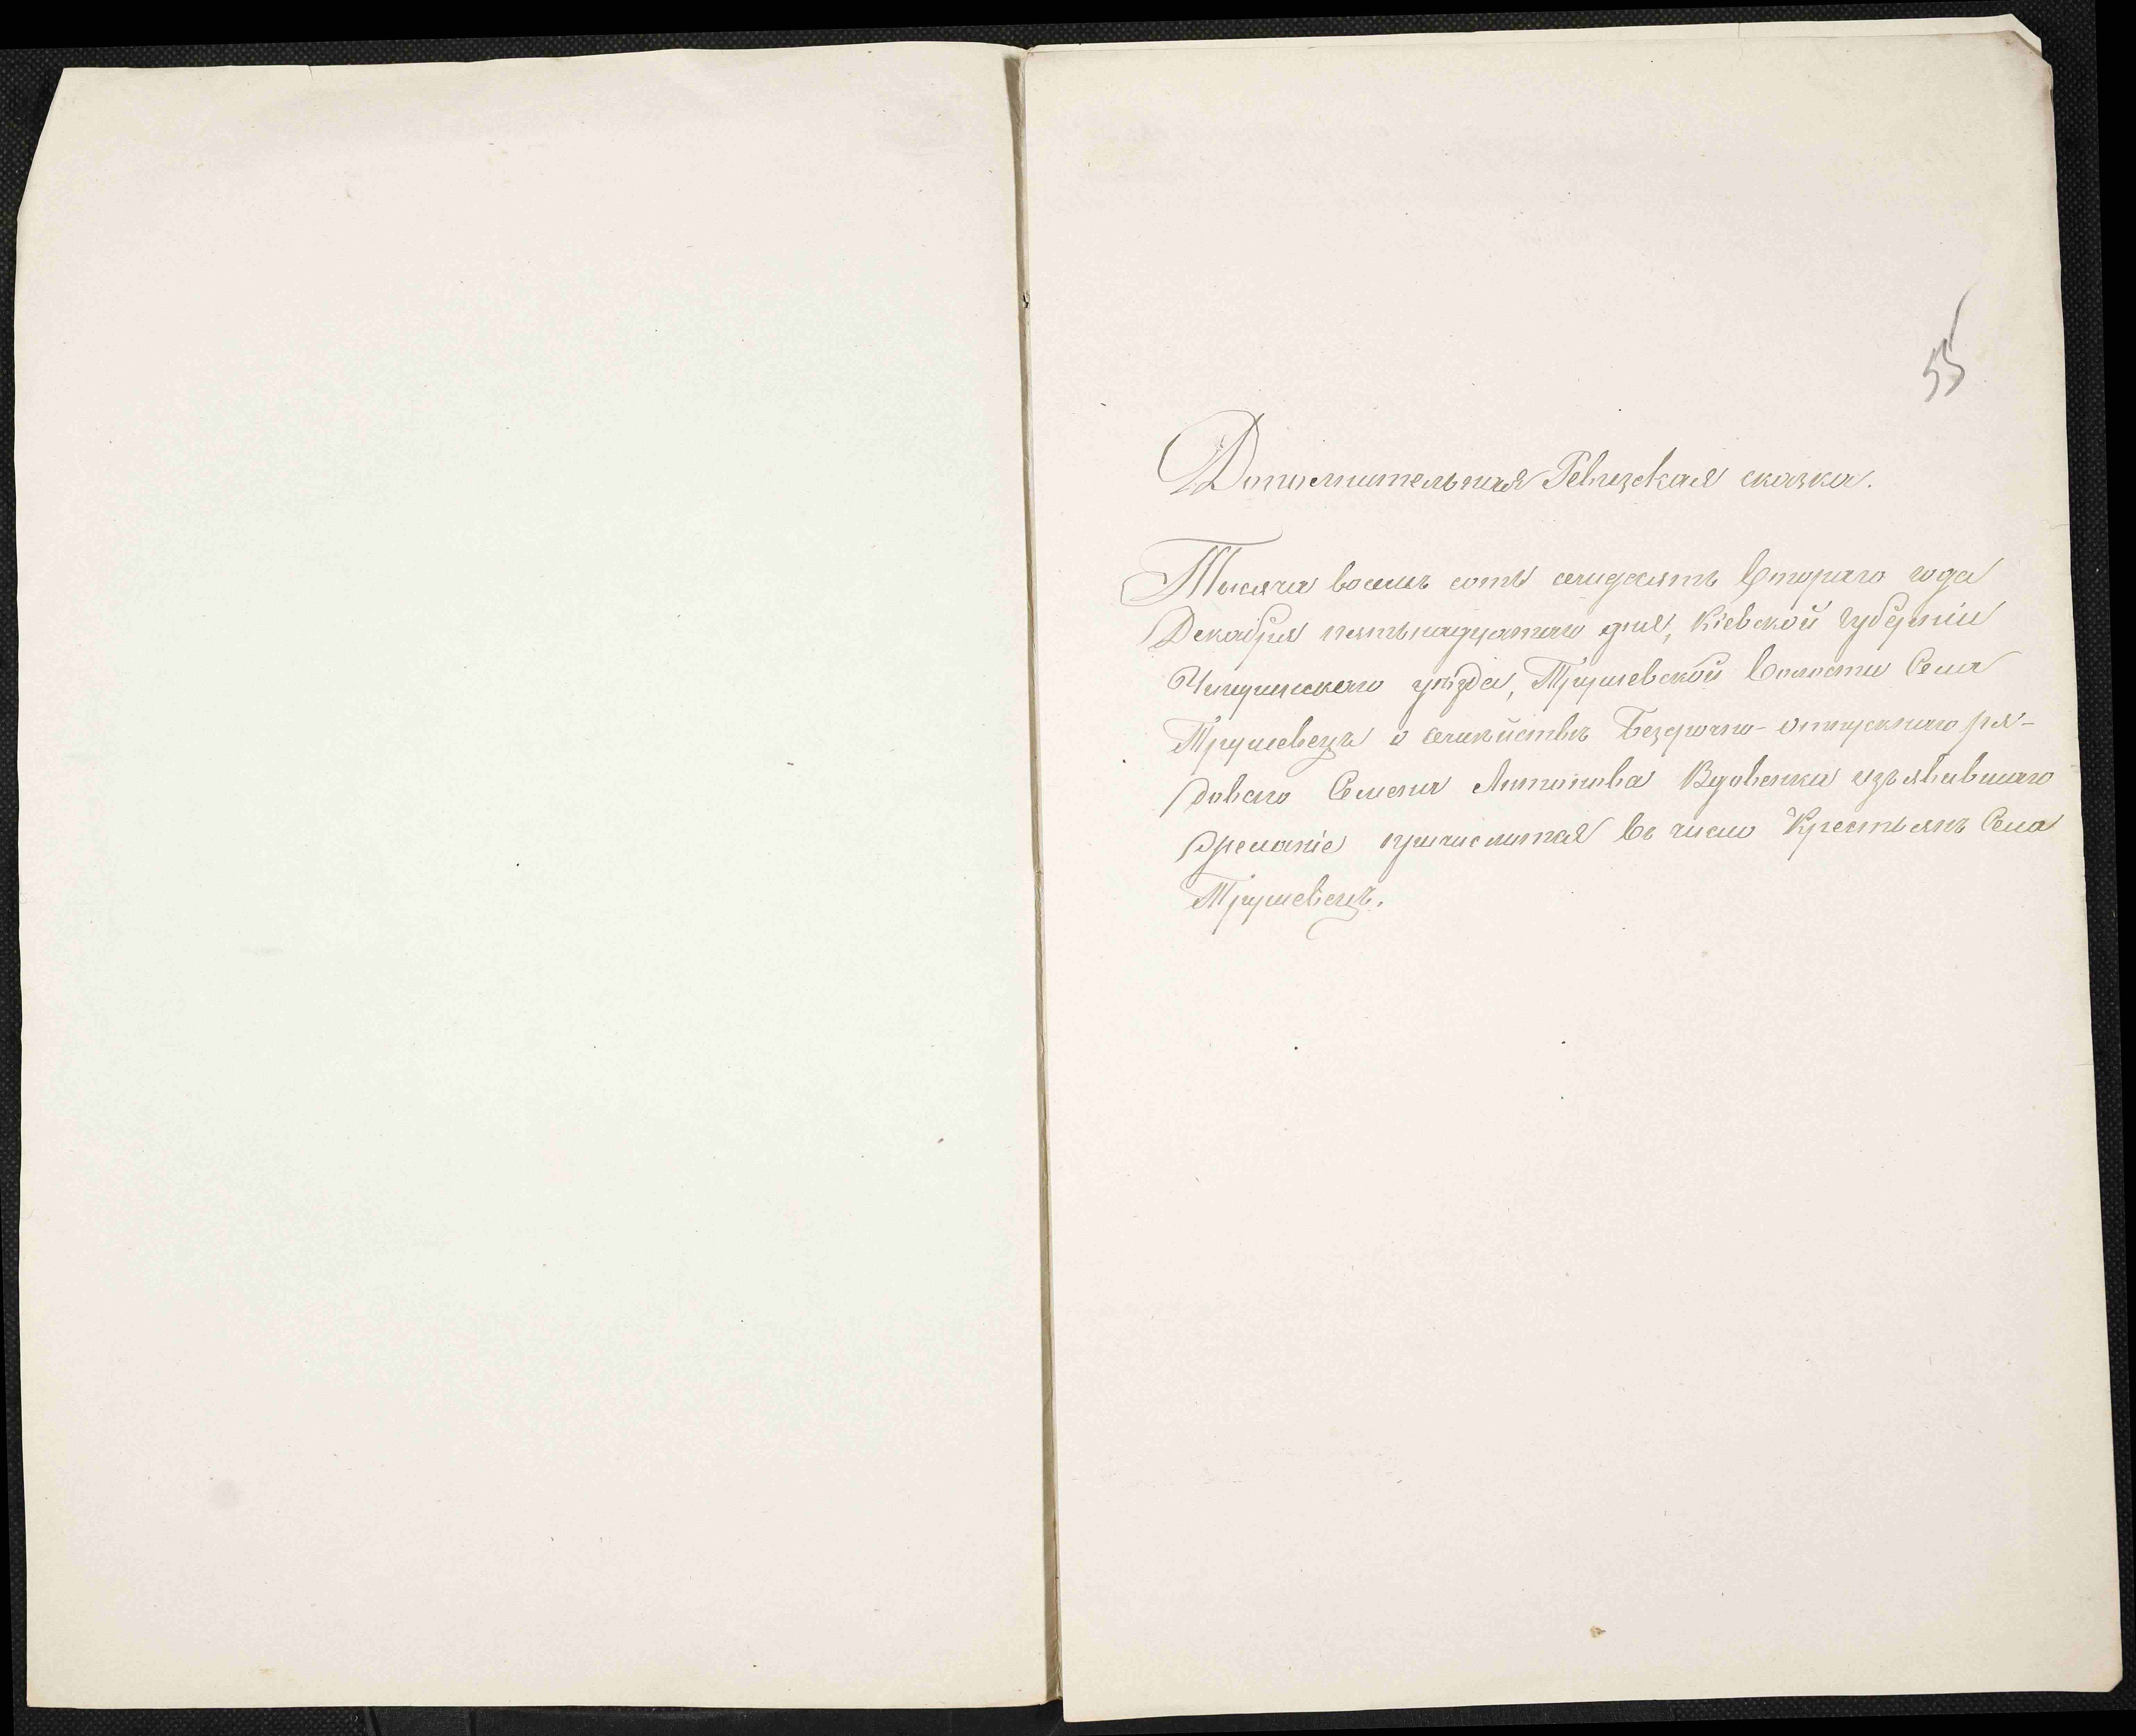 55
Дополнительная Ревизская сказка.
Тысяча восемь сотъ семдесятъ втораго года
Декабря пятьнадцатаго дня, Кіевской губерніи
Чигиринскаго уѣзда, Трушевской волости Села
Трушевецъ о семѣйствѣ Безсрочно-отпускнаго ря-
доваго Семена Антонова Вдовенка изъявившаго
желаніе причислится въ число Крестьянъ Села
Трушевецъ.